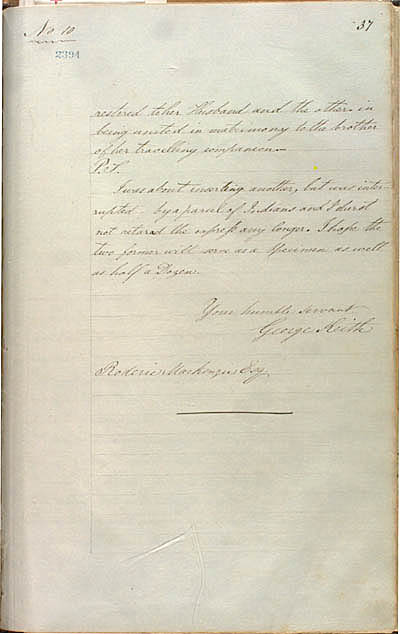 No 10
37
2394
restored to her Husband and the other in
being united in matrimony to the brother
of her travelling companion
P.S.
I was about inserting another, but was inter-
rupted by a parcel of Indians and I durst
not retard the express any longer. I hope the
two former will serve as a Specimen as well
as half a Dozen.
Your humble servant
George Keith
Roderic Mackenzie Esq